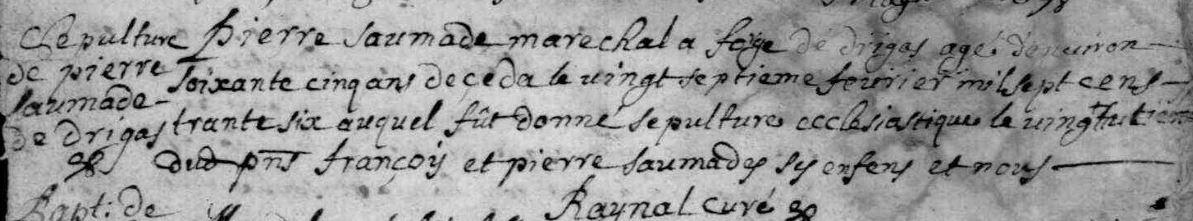 Sepulture Pierre Saumade marechal a forge de drigas agé denviron
de pierre soixante cinq ans deceda le vingt septieme fevrier mil sept cens
saumade
de Drigas trante six auquel fût donné sepulture ecclesiastique le vingthutieme
dud pns françois et pierre saumades ses enfens et nous
Bapt: de Raynal curé